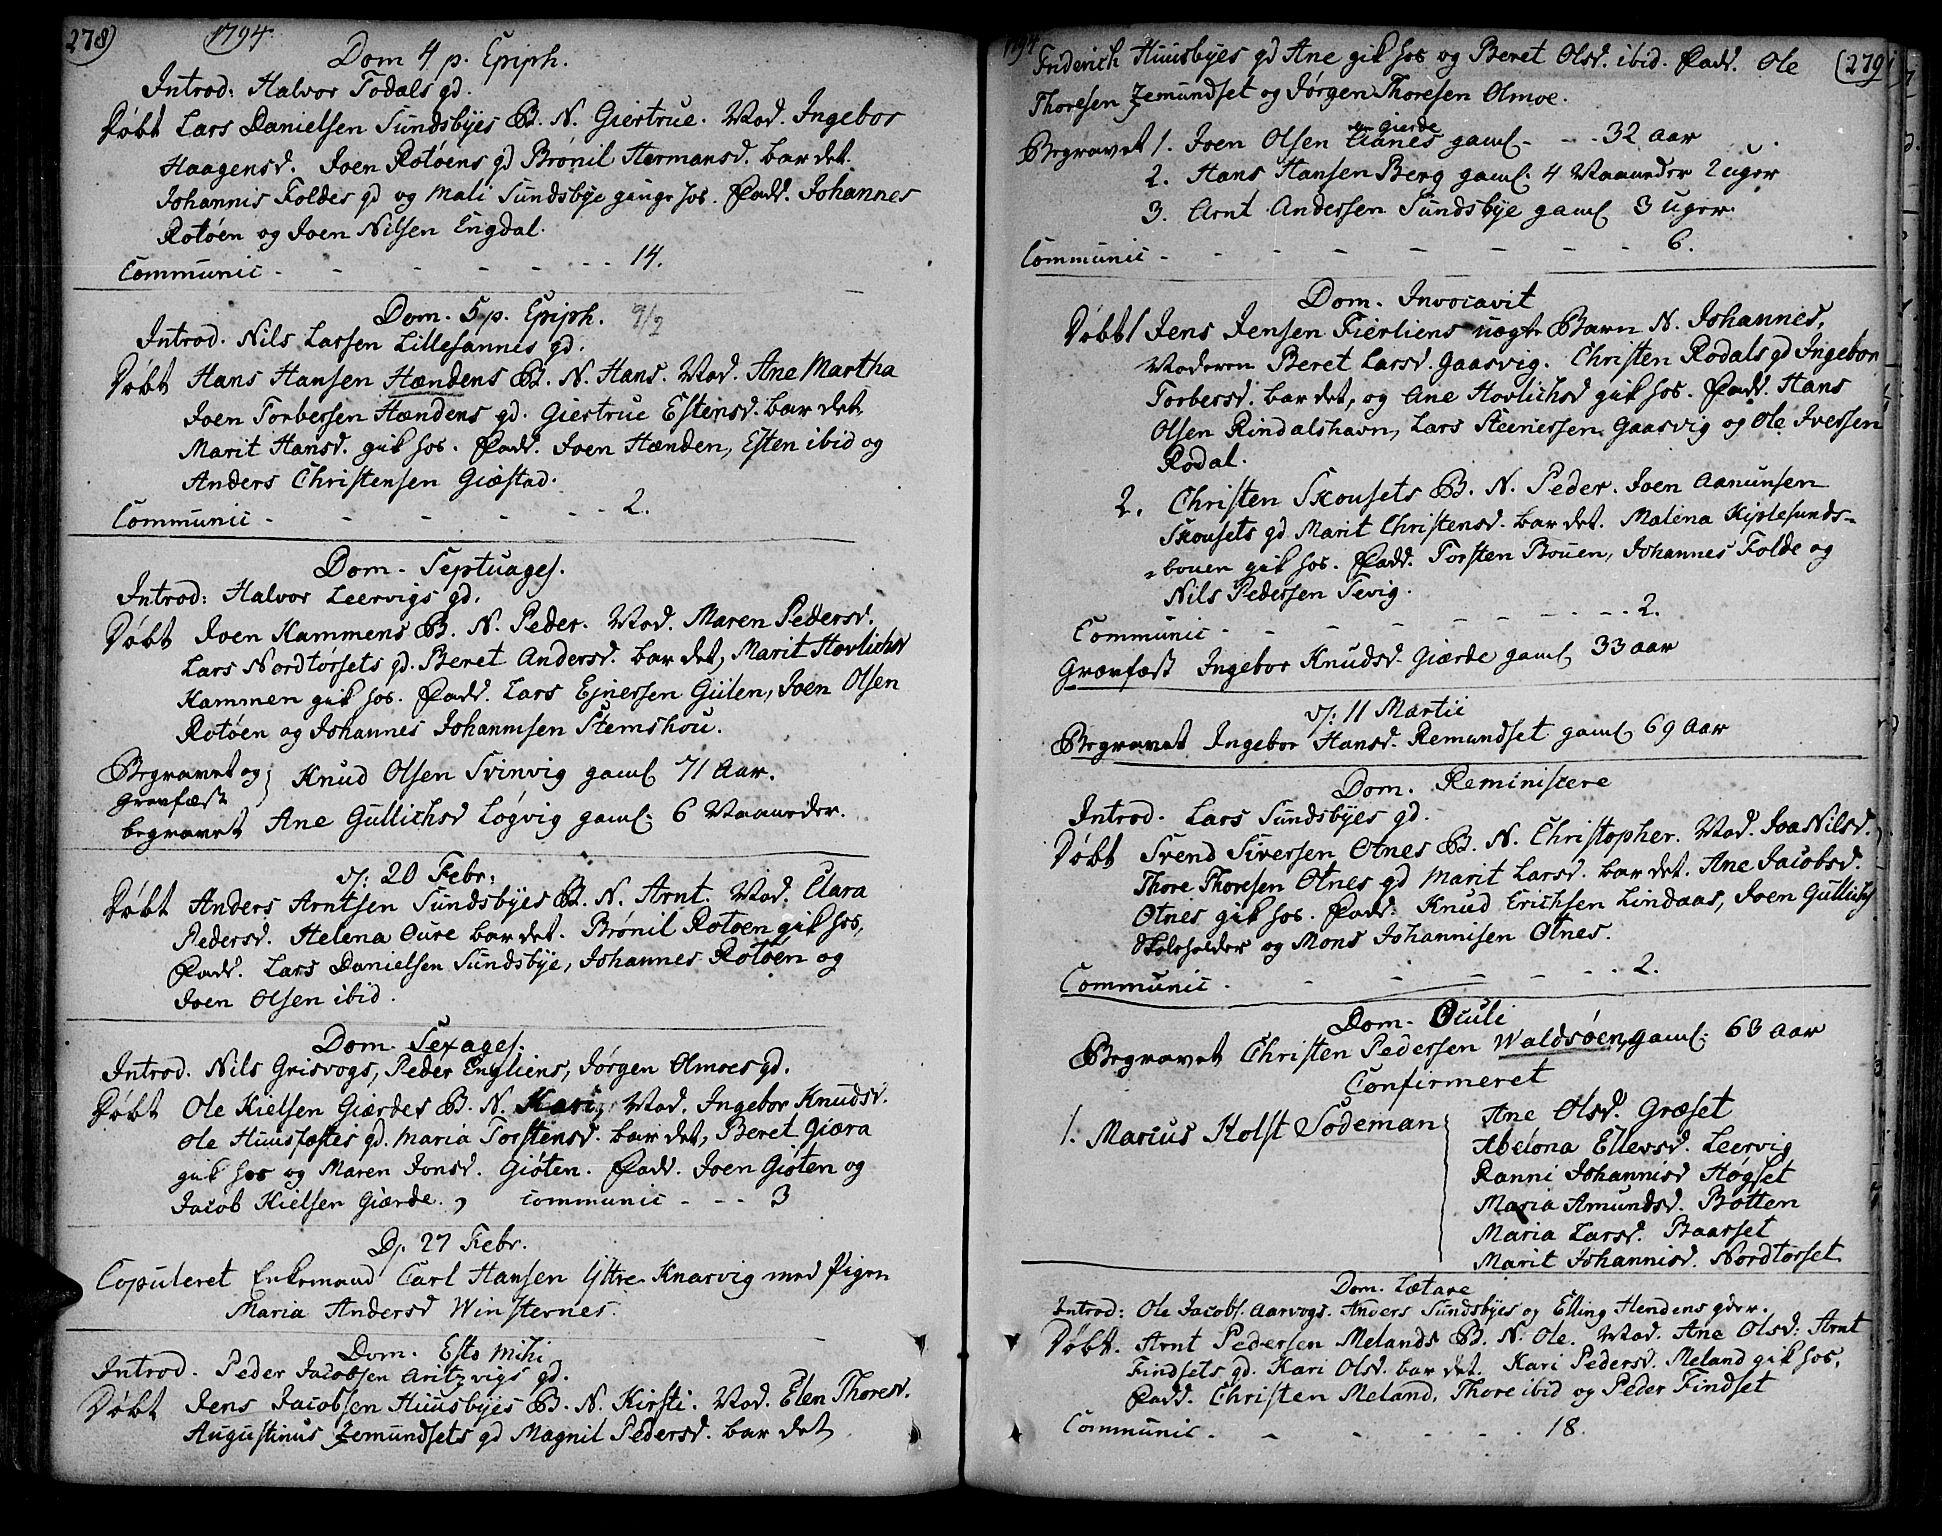 278) 1794
Dom 4 p. Epiph.
Introd: Halvor Todals gd.
Døbt Lars Danielsen Sundsbyes B. N. Giertrue. Mod. Ingebor
Haagensd. Joen Rotøens gd Brønil Hermansd. bar det.
Johannis Foldes gd og Mali Sundsbye ginge hos. Fadd. Johannes
Rotøen og Joen Nilsen Engdal.
Communic - - - - - - - 14.
Dom. 5 p. Epiph. 9/2
Introd. Nils Larsen Lillefannis gd.
Døbt Hans Hansen Hændens B. N. Hans. Mod. Ane Martha
Joen Torbersen Hændens gd. Giertrue Estensd. bar det
Marit Hansd. gik hos. Fadd. Joen Hænden, Esten ibid og
Anders Christensen Giæstad.
Communic - - - - - - 2.
Dom - Septuages.
Introd: Halvor Leervigs gd.
Døbt Joen Hammens B. N. Peder. Mod. Maren Pedersd.
Lars Nordtørsets gd. Beret Andersd. bar det, Marit Hovlichsd
Hammen gik hos. Fadd. Lars Ejnersen Gülen, Joen Olsen
Rotøen og Johannes Johannisen Stemshou.
Begravet og Knud Olsen Svinvig gaml 71 Aar.
Gravfæst
begravet Ane Gullichsd Løgvig gaml: 6 Maaneder.
d: 20 Febr:
Døbt Anders Arntsen Sundsbyes B. N. Arnt. Mod: Clara
Pedersd. Helena Oure bar det. Brønil Rotøen gik hos,
Fadd. Lars Danielsen Sundsbye, Johannes Rotøen og
Joen Olsen ibid.
Dom. Sexages.
Introd. Nils Grisvogs, Peder Engliens, Jørgen Olmoes gd.
Døbt Ole Kielsen Giærdes B. N. Kari. Mod. Ingebor Knudsd.
Ole Huusfæstes gd. Maria Torstensd. bar det, Beret Giæra
gik hos og Maren Jonsd. Gjøten. Fadd. Joen Giøten og
Jacob Kielsen Giærde. Communic - - - 3
D. 27 Febr.
Copuleret Enkemand Carl Hansen Yttre Knarvig med Pigen
Maria Andersd Winsternes.
Dom. Esto mihi
Introd. Peder Jacobsen Aritzvigs gd.
Døbt Jens Jacobsen Huusbyes B. N. Kirsti. Mod. Elen Thoresd.
Augustinus Zemundsets gd Magnil Pedersd. bar det
1794 (279
Friderich Huusbyes gd Ane gik hos og Beret Olsd. ibid. Fadd. Ole
Thoresen Zemundset og Jørgen Thoresen Olmoe.
Begravet 1. Joen Olsen Gierde gaml - - - 32 Aar
2. Hans Hansen Berg gaml. 4 Maaneder 2 uger
3. Arnt Andersen Sundsbye gaml 3 uger.
Communic - - - - - - - - 6.
Dom. Invocavit
Døbt 1 Jens Jensen Fierliens uægte Barn N. Johannes,
Moderen Beret Larsd. Gaasvig. Christen Rodals gd Ingebor
Torbersd. bar det, og Ane Hovlichsd gik hos. Fadd. Hans
Olsen Rindalshavn, Lars Steenersen Gaasvig og Ole Iversen
Rodal.
2. Christen Skousets B. N. Peder. Joen Aamunsen
Skousets gd Marit Christensd. bar det. Malena Kiplesunds-
-bouen gik hos. Fadd. Torsten Bouen, Johannes Folde og
Nils Pedersen Tevig.
Communic - - - - - - - - 2.
Gravfæst Ingebor Knudsd. Giærde gaml 33 aar
d: 11 Martii
Begravet Ingebor Hansd. Remundset gaml 69 Aar
Dom. Reministere
Introd. Lars Sundsbyes gd.
Døbt Svend Siversen Otnes B. N. Christopher. Mod. Joa Nilsd.
Thore Thoresen Otnes gd Marit Larsd. bar det. Ane Jacobsd.
Otnes gik hos. Fadd: Knud Erichsen Lindaas, Joen Gullichs
Skoleholder og Mons Johannisen Otnes.
Communic. - - - - - - 2.
Dom. Oculi
Begravet Christen Pedersen Waldsøen, gaml: 63 Aar
Confirmeret
1. Marius Holst Sodeman
Ane Olsd. Græset
Abelona Ellevsd. Leervig
Ranni Johannisd Høgset
Maria Amundsd. Botten
Maria Larsd. Baarset
Marit Johannisd. Nordtørset
Dom. Lætare
Introd: Ole Jacobs. Aarvogs. Anders Sundsbyes og Elling Hendens gder.
Døbt. Arnt Pedersen Melands B. N. Ole. Mod. Ane Olsd: Arnt
Findsets gd. Kari Olsd. bar det. Kari Pedersd. Meland gik hos,
Fadd. Christen Meland, Thore ibid og Peder Findset
Communic. - - - - - - 18.